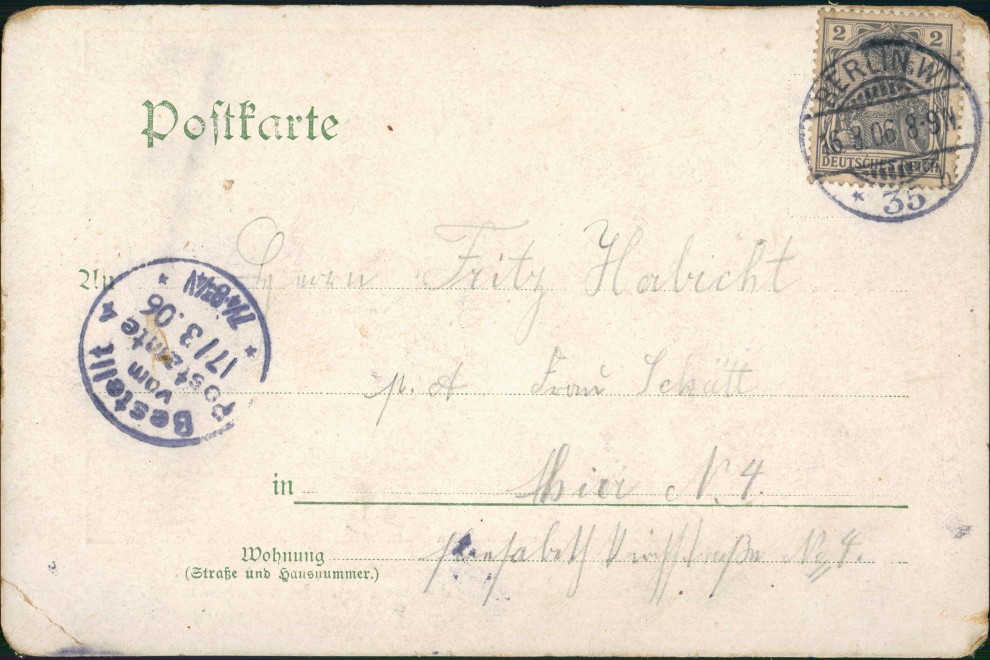 2 2
DEUTSCHES REICH
BERLIN.W.
16.3.06 8-9N
* 35
Postkarte
An Herrn Fritz Habicht
p. A Frau Schütt
in Hier N. 4.
Wohnung Elisabeth Kirchstraße No 4.
(Straße und Hausnummer.)
Bestellt
vom
Postamte 4
17/3.06